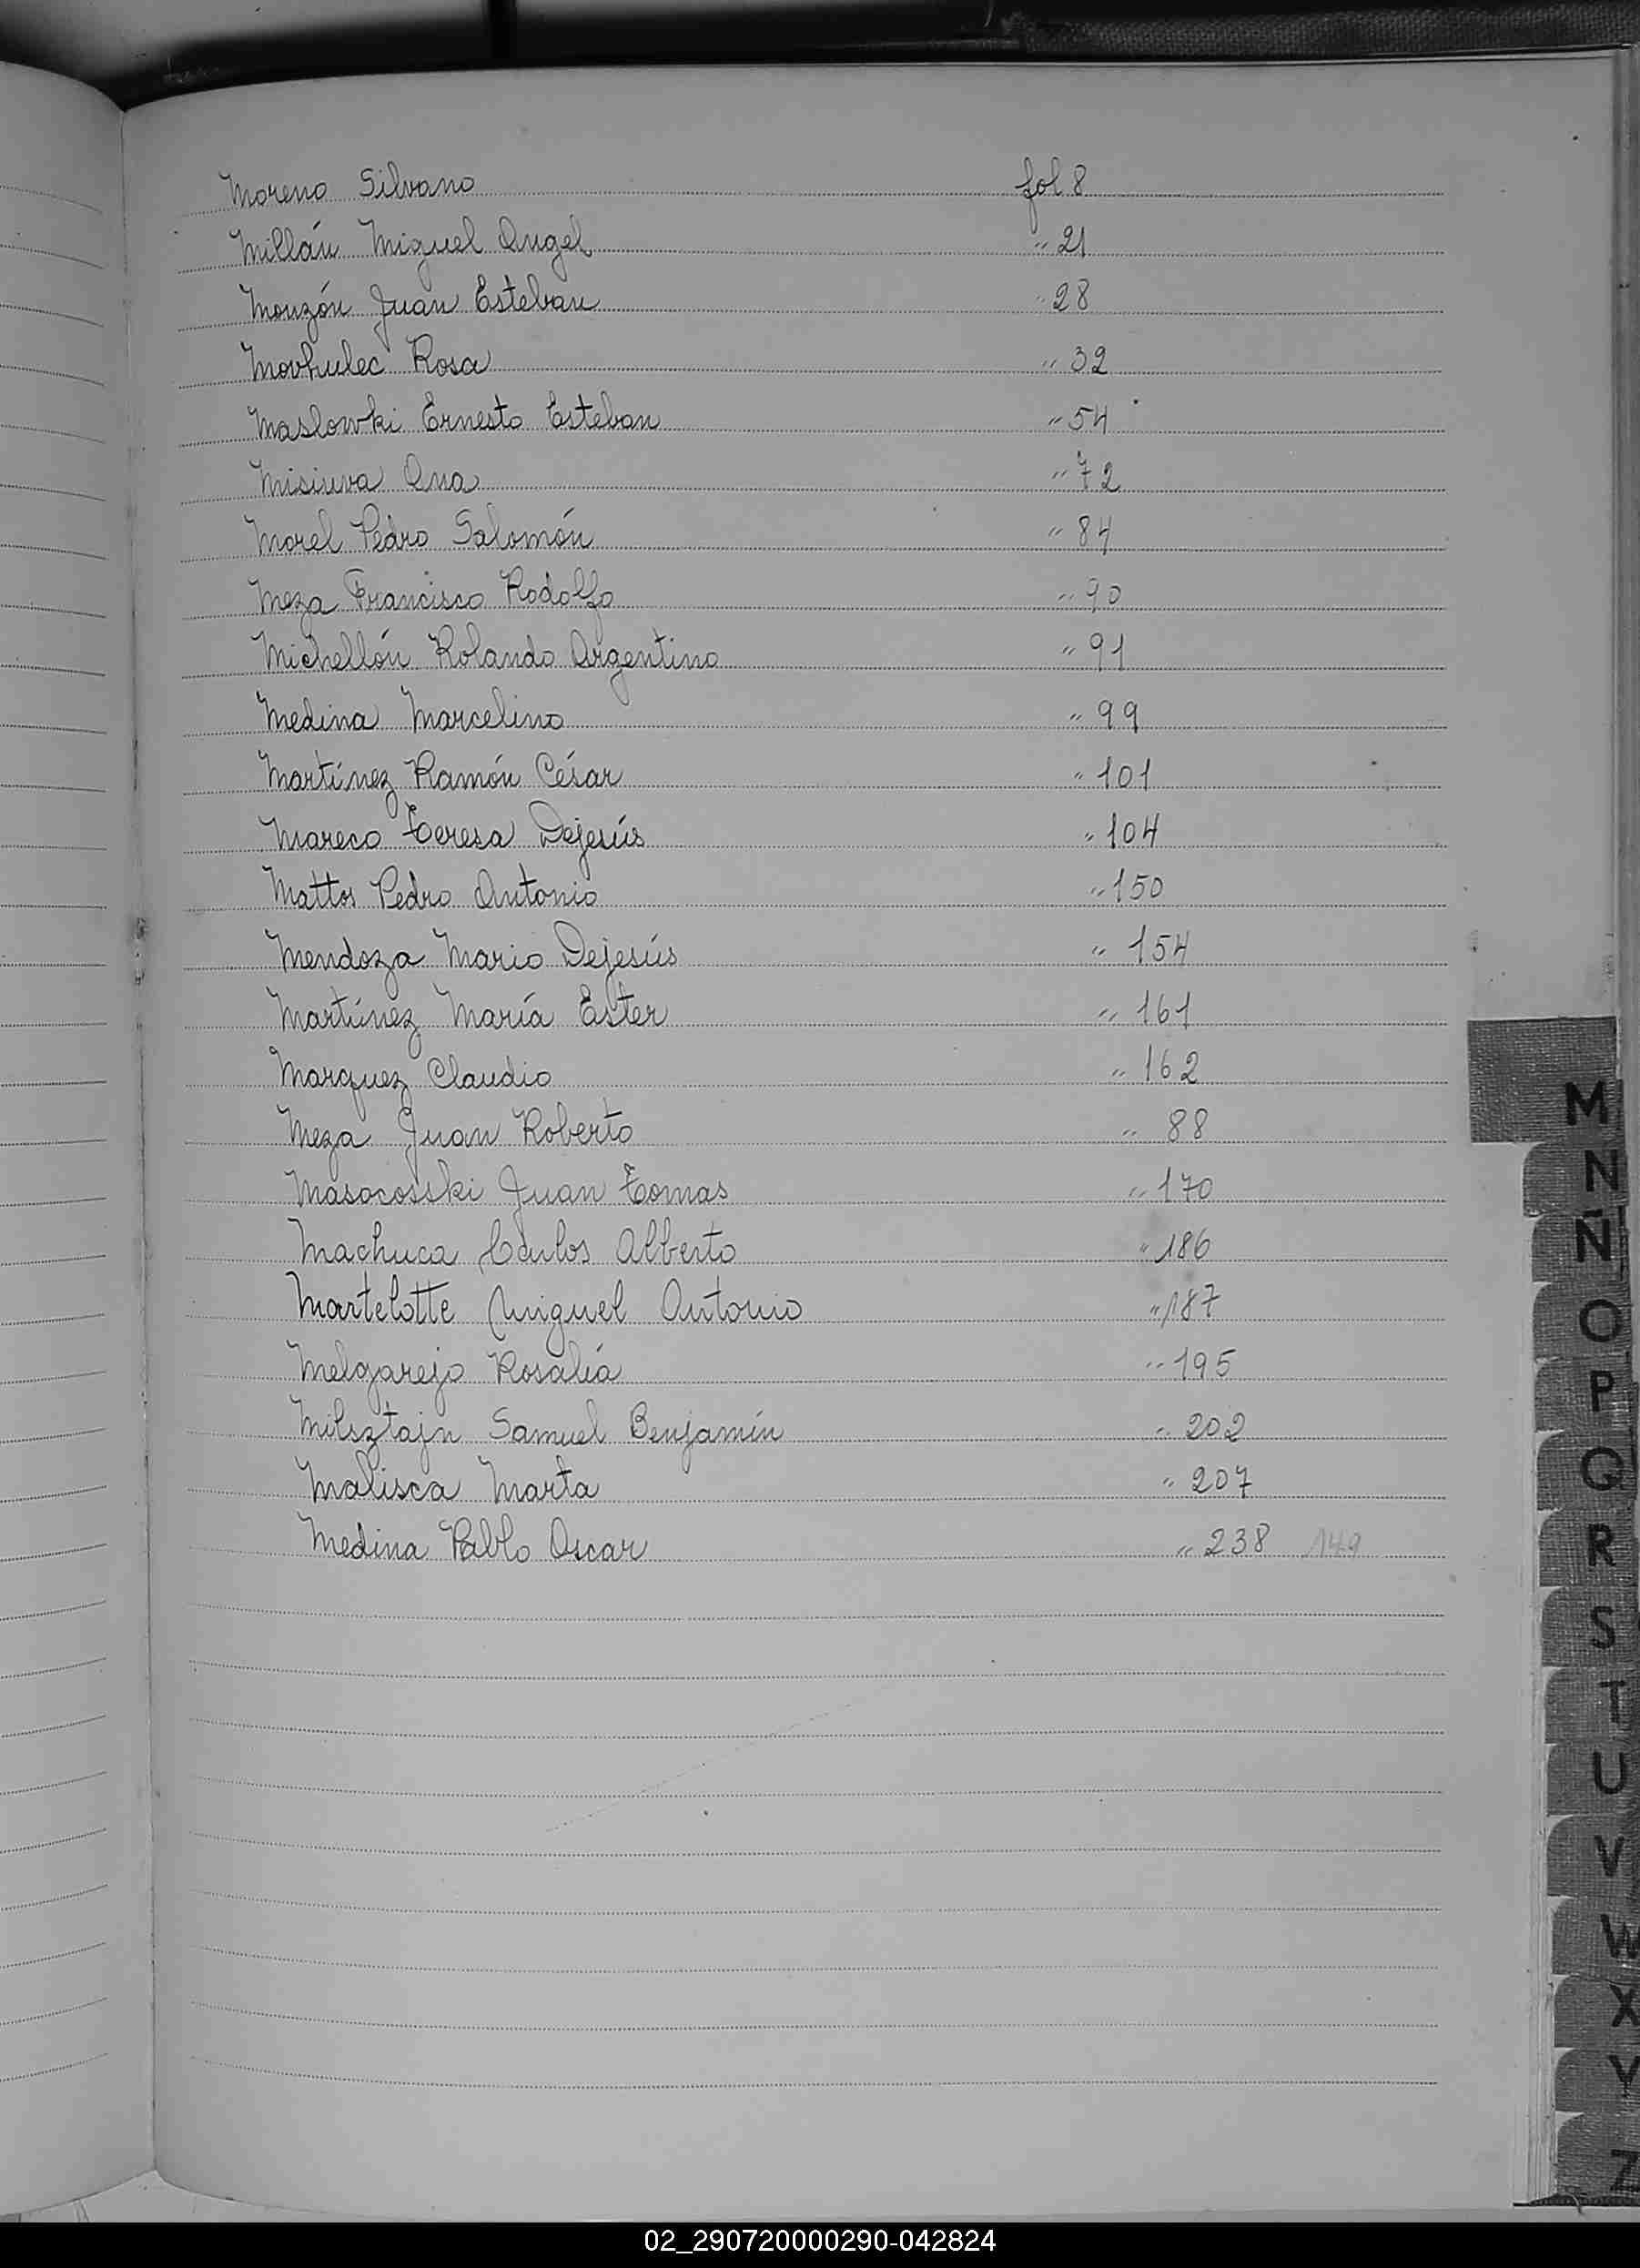 Moreno Silvano fol 8
Millán Miguel Angel " 21
Monzón Juan Esteban " 28
Movhulec Rosa " 32
Maslowki Ernesto Esteban " 54
Misiuva Ana " 72
Morel Pedro Salomón " 84
Meza Francisco Rodolfo " 90
Michellón Rolando Argentino " 91
Medina Marcelino " 99
Martínez Ramón César " 101
Mareco Teresa Dejesús " 104
Mattos Pedro Antonio " 150
Mendoza Mario Dejesús " 154
Martínez María Ester " 161
Marquez Claudio " 162
Meza Juan Roberto " 88
Masocosski Juan Tomas " 170
Machuca Carlos Alberto " 186
Martelotte Miguel Antonio " 187
Melgarejo Rosalía " 195
Milsztajn Samuel Benjamín " 202
Malisca Marta " 207
Medina Pablo Oscar " 238 149
M
N
Ñ
O
P
Q
R
S
T
U
V
W
X
Y
Z
02_290720000290-042824